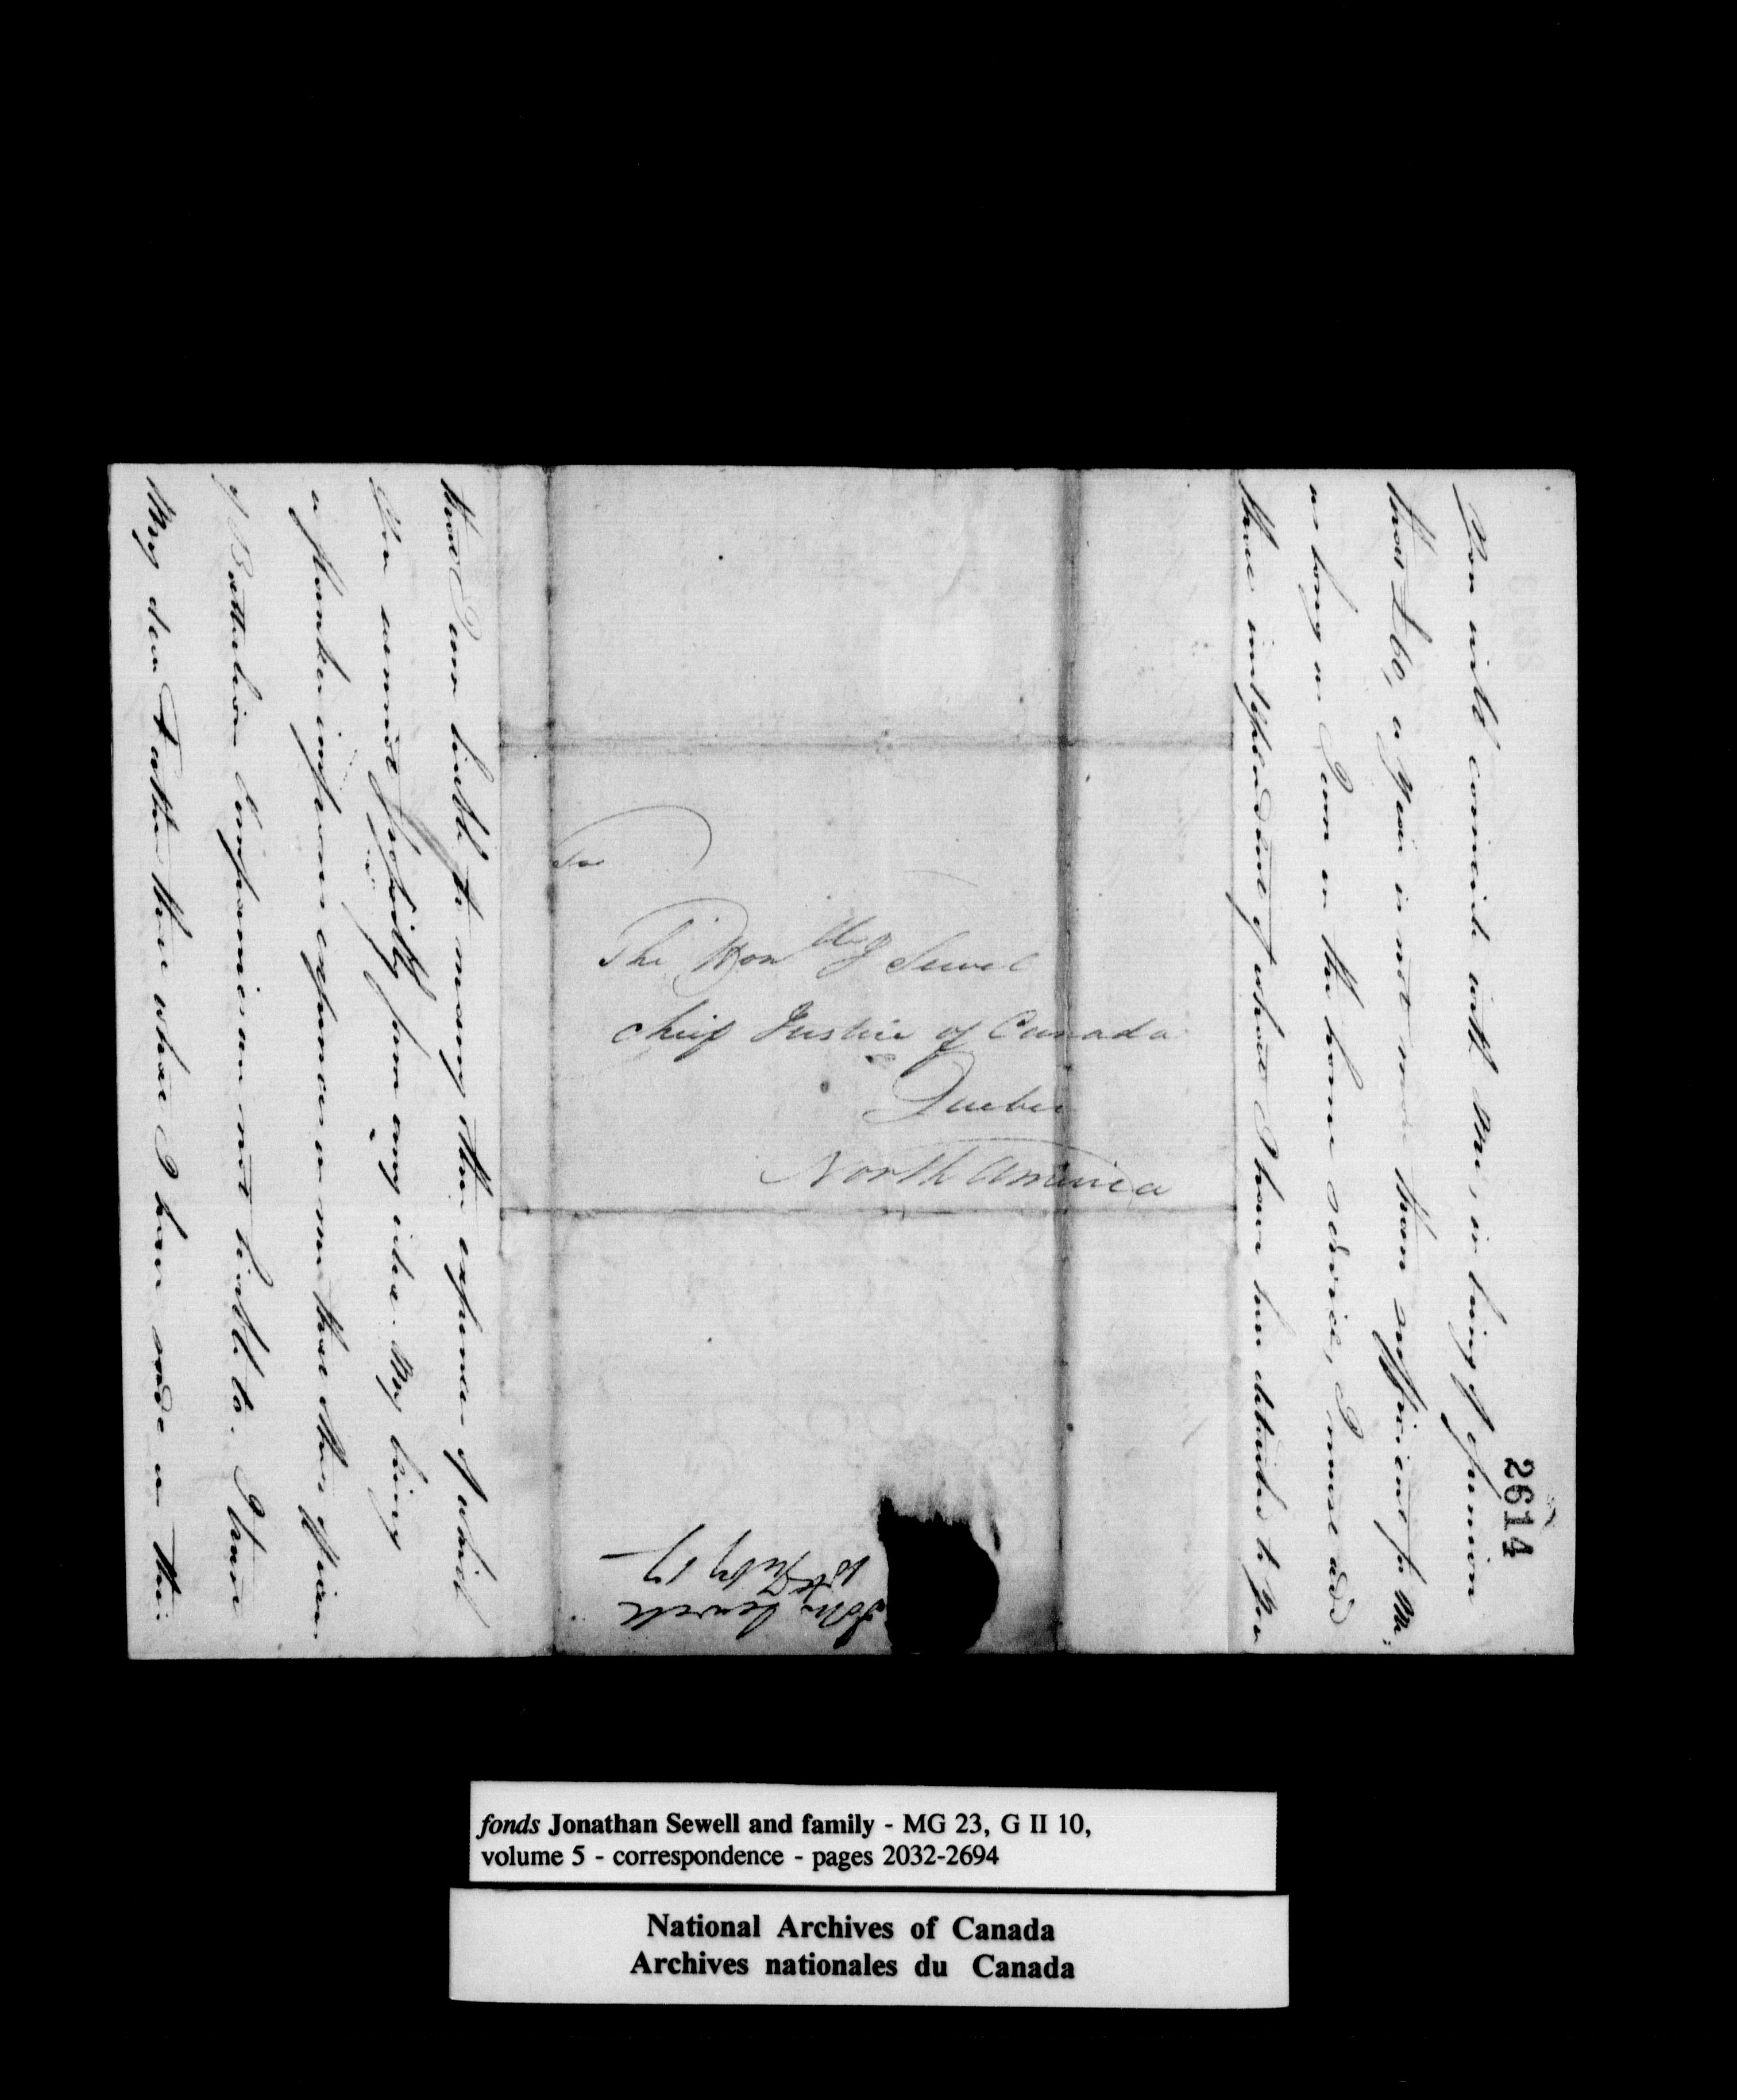 2614
You will coincide with me, in being of opinion
that £60, a year is not more than sufficient for me;
as long as I am on the home service, I must add
that independent of what I have been debited to you
that I am liable to many other expences of which
You cannot possibly form any idea. My being
a flanker imposes expences on me that other officers
of Battalion Companies are not liable to. I trust
My dear Father that what I have said on the:
To
The Honble J Sewel
Cheif Justice of Canada
Quebec
North America
John Sewell
10th July 17
fonds Jonathan Sewell and family - MG 23, G II 10,
volume 5 - correspondence - pages 2032-2694
National Archives of Canada
Archives nationales du Canada